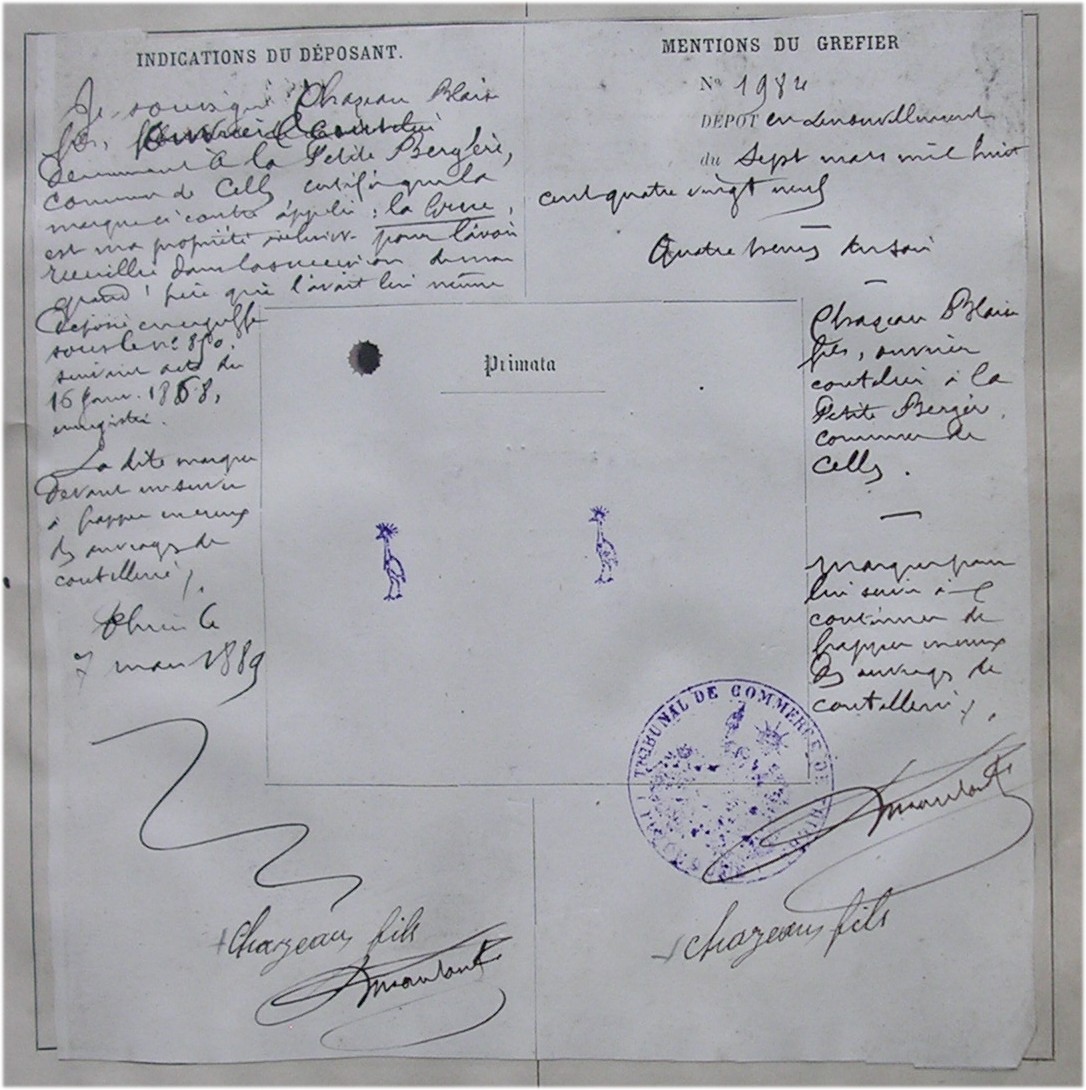 INDICATIONS DU DÉPOSANT.
Je soussigné Chazeau Blaise
fils, ouvrier Coutelier
demeurant à la Petite Bergère,
commune de Celles certifie que la
marque ci contre appelée : la Grue,
est ma propriété pour l'avoir
recueillie dans la succession de mon
grand'père qui l'avait lui même
déposée au greffe
sous le no 850.
suivant acte du
16 janv. 1868,
enregistré.
La dite marque
devant me servir
à frapper mes
des ouvrages de
coutellerie /.
Thiers le
7 mars 1889
Chazeau fils
MENTIONS DU GREFIER
No 1984
DÉPOT en renouvellement
du sept mars mil huit
cent quatre vingt neuf
Quatre heures du soir
Chazeau Blaise
fils, ouvrier
coutelier à la
Petite Bergère,
commune de
Celles.
marque pour
lui servir à
continuer de
frapper
des ouvrages de
coutellerie /.
Chazeau fils
Primata
TRIBUNAL DE COMMERCE DE THIERS